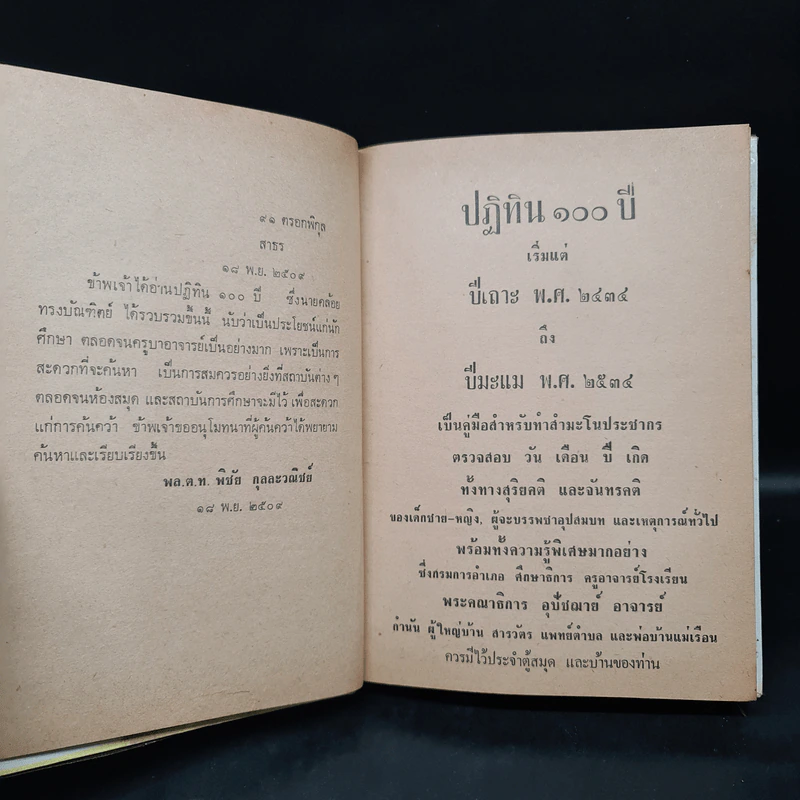 ๙๑ ตรอกพิกุล
สาธร
๑๘ พ.ย. ๒๕๐๙
ข้าพเจ้าได้อ่านปฏิทิน ๑๐๐ ปี ซึ่งนายคล้อย
ทรงบัณฑิตย์ ได้รวบรวมขึ้นนี้ นับว่าเป็นประโยชน์แก่นัก
ศึกษา ตลอดจนครูบาอาจารย์เป็นอย่างมาก เพราะเป็นการ
สะดวกที่จะค้นหา เป็นการสมควรอย่างยิ่งที่สถาบันต่างๆ
ตลอดจนห้องสมุด และสถาบันการศึกษาจะมีไว้ เพื่อสะดวก
แก่การค้นคว้า ข้าพเจ้าขออนุโมทนาที่ผู้ค้นคว้าได้พยายาม
ค้นหาและเรียบเรียงขึ้น
พล.ต.ท. พิชัย กุลละวณิชย์
๑๘ พ.ย. ๒๕๐๙
ปฏิทิน ๑๐๐ ปี
เริ่มแต่
ปีเถาะ พ.ศ. ๒๔๓๔
ถึง
ปีมะแม พ.ศ. ๒๕๓๔
เป็นคู่มือสำหรับทำสำมะโนประชากร
ตรวจสอบ วัน เดือน ปี เกิด
ทั้งทางสุริยคติ และจันทรคติ
ของเด็กชาย-หญิง, ผู้จะบรรพชาอุปสมบท และเหตุการณ์ทั่วไป
พร้อมทั้งความรู้พิเศษมากอย่าง
ซึ่งกรมการอำเภอ ศึกษาธิการ ครูอาจารย์โรงเรียน
พระคณาธิการ อุปัชฌาย์ อาจารย์
กำนัน ผู้ใหญ่บ้าน สารวัตร แพทย์ตำบล และพ่อบ้านแม่เรือน
ควรมีไว้ประจำตู้สมุด และบ้านของท่าน